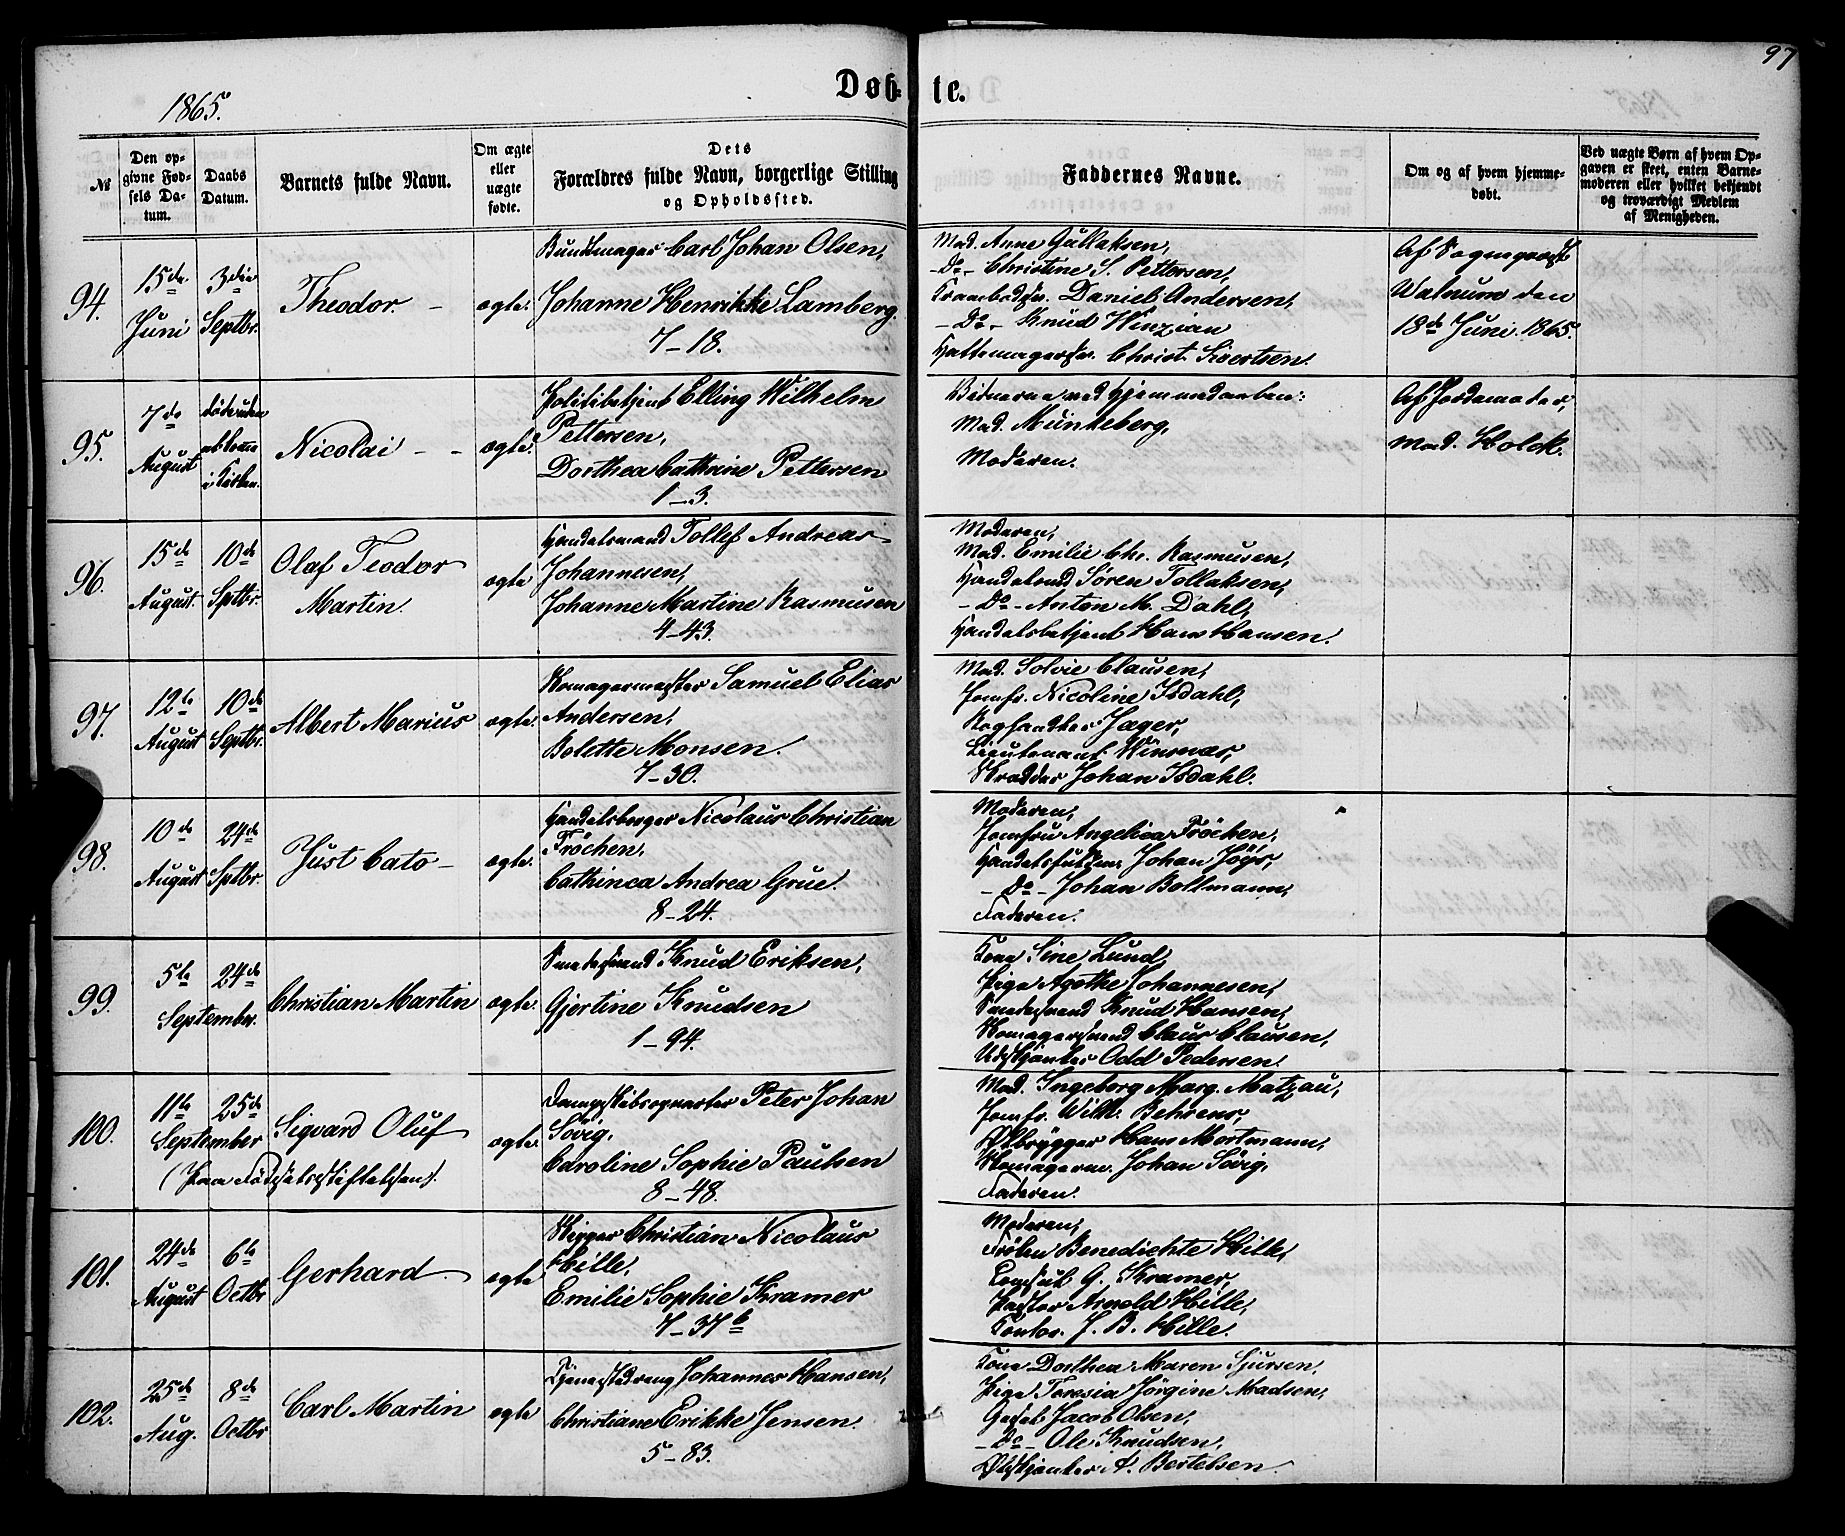 97
Døb- te.
1865.
№
Den op-
givne Fød-
sels Da-
tum.
Daabs
Datum.
Barnets fulde Navn.
Om ægte
eller
uægte
fødte.
Dets
Forældres fulde Navn, borgerlige Stilling
og Opholdssted.
Faddernes Navne.
Om og af hvem hjemme-
døbt.
Ved uægte Børn af hvem Op-
gaven er skeet, enten Barne-
moderen eller hvilket bekjendt
og troværdigt Medlem
af Menigheden.
94.
15de
Juni
3die
Septbr.
Theodor. -
ægte.
Bundtmager Carl Johan Olsen,
Johanne Henrikke Lamberg.
7-18.
Mad. Anne Gullaksen,
-Do- Christine S. Pettersen,
Daniel Andersen,
-Do- Knud Winzian
Hattemagersv. Christ. Sivertsen.
Af Sogneprest
Walnum den
18de Juni 1865.
95.
7de
August
døde uden
at komme
i Kirken.
Nicolai - -
ægte.
Politibetjent Elling Wilhelm
Pettersen,
Dorthea Cathrine Pettersen
1-3.
Vidnerne ved Hjemmedaaben:
Mad. Münkeberg,
Moderen.
Af Jordemoder,
Mad. Holck.
96.
15de
August.
10de
Sptbr.
Olaf Teodor
Martin.
ægte
Handelsmand Tollef Andreas
Johannesen,
Johanne Martine Rasmusen
4-43.
Moderen,
Mad. Emilie Chr. Rasmusen,
Handelsmd Søren Tollaksen,
-Do- Anton M. Dahl,
Handelsbetjent Hans Hansen.
97.
12te
August
10de
Septbr.
Albert Marius
ægte.
Skomagermester Samuel Elias
Andersen,
Bolette Monsen.
7-30.
Mad. Solvie Clausen,
Jomfr. Nicoline Isdahl,
Jæger,
Lieutenant Winsnæs,
Skrædder Johan Isdahl.
98.
10de
August
24de
Sptbr.
Just Cato -
ægte.
Handelsborger Nicolaus Christian
Tröchen,
Cathinca Andrea Grue.
8-24.
Moderen,
Jomfru Angelica Tröchen,
Johan
-Do- Johan Boltmann,
Faderen.
99.
5te
24de
September.
Christian Martin
ægte.
Knud Eriksen,
Gjertine Knudsen
1-94.
Kone Sine Lund,
Pige Agethe Johannesen,
Knud Hansen,
Skomagersvend Claus Clausen,
Odd Pedersen.
100.
11te
25de
September
(Paa Fødselsstiftelsen).
Sigvard Oluf
ægte.
Peter Johan
Søvig,
Caroline Sophie Paulsen
8-48.
Mad. Ingeborg Marg. Matzau,
Jomfr. Wilh. Behrens,
Ølbrygger Hans Mortmann,
Skomagerm. Johan Søvig,
Faderen.
101.
24de
August
6te
Octbr
Gerhard.
ægte
Skipper Christian Nicolaus
Hille,
Emilie Sophie Kramer
7-37b
Moderen,
Frøken Benedichte Hille,
Consul G. Kramer,
Pastor Arnold Hille,
Contor. J. B. Hille.
102.
25de
Aug.
8de
Octbr
Carl Martin
ægte
Tjenestedreng Johannes Hansen,
Christiane Erikke Jensen
5-83.
Kone Dorthea Maren Sjursen,
Pige Teresia Jørgine Madsen,
Jacob Olsen,
-Do- Ole Knudsen,
A. Bertelsen.